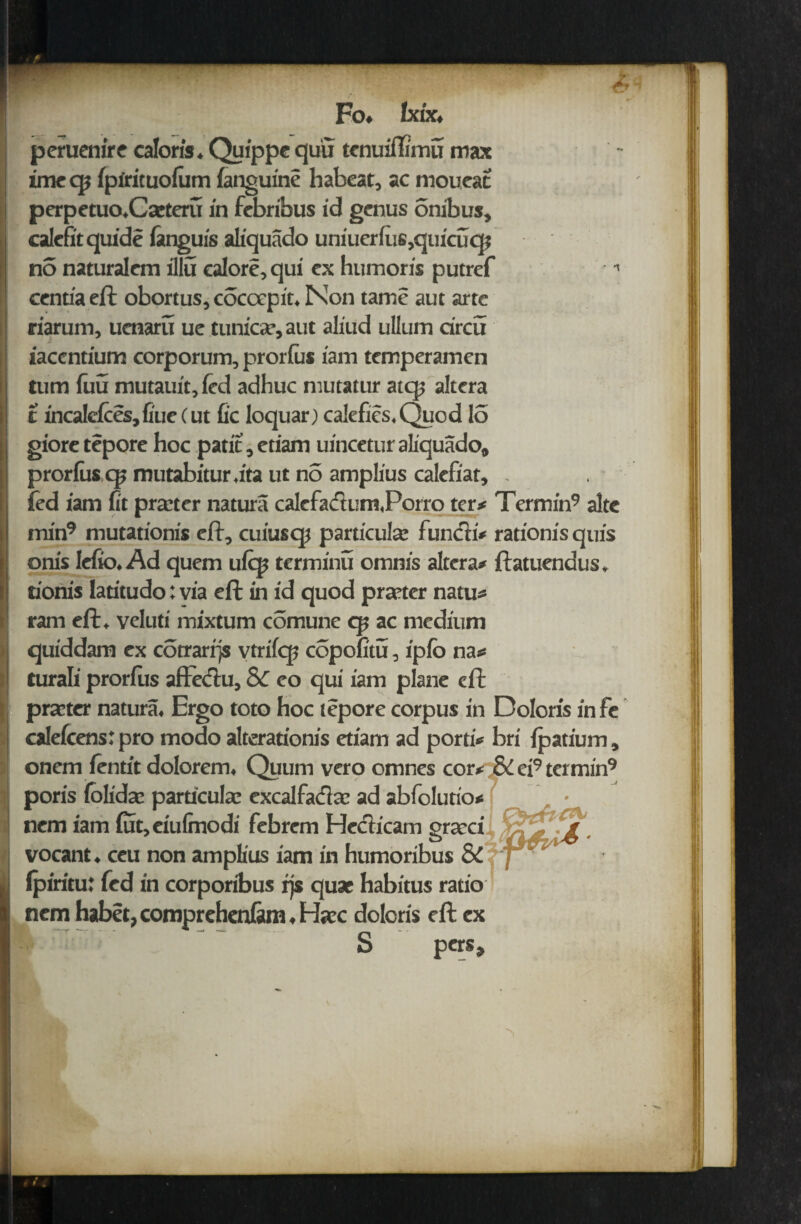 Fo. lxix.
peruenire caloris. Quippe quũ tenuiſſimũ max
imeq́ꝫ ſpirituoſum ſanguinẽ habeat, ac moueat
perpetuo.Cæterũ in febribus id genus õnibus,
calefit quidẽ ſanguis aliquãdo uniuerſus,quicũqꝫ
nõ naturalem illũ calorẽ, qui ex humoris putreſ
centia eſt obortus, cõcœpit. Non tamẽ aut arte
riarum, uenarũ ue tunicæ, aut aliud ullum circũ
iacentium corporum, prorſus iam temperamen
tum ſuũ mutauit, ſed adhuc mutatur atqꝫ altera
t̃ incaleſcẽs, ſiue (ut ſic loquar) calefiẽs. Quod lõ
giore tẽpore hoc patit̃, etiam uincetur aliquãdo,
prorſusqꝫ mutabitur.ita ut nõ amplius calefiat,
ſed iam ſit præter naturã calefactum.Porro ter⸗
minꝰ mutationis eſt, cuiusqꝫ particulæ functi⸗
onis leſio. Ad quem uſqꝫ terminũ omnis altera⸗
tionis latitudo: via eſt in id quod præter natu⸗
ram eſt. veluti mixtum cõmune qꝫ ac medium
quiddam ex cõtrarijs vtriſqꝫ cõpoſitũ, ipſo na⸗
turali prorſus affectu, & eo qui iam plane eſt
præter naturã. Ergo toto hoc tẽpore corpus in
caleſcens: pro modo alterationis etiam ad porti⸗
onem ſentit dolorem. Quum vero omnes cor⸗
poris ſolidæ particulæ excalfactæ ad abſolutio⸗
nem iam ſũt, eiuſmodi febrem Hecticam græci
vocant. ceu non amplius iam in humoribus &
ſpiritu: ſed in corporibus ijs quæ habitus ratio
nem habẽt, comprehenſam. Hæc doloris eſt ex
S pers,
Terminꝰ alte
rationis quis
ſtatuendus.
Doloris in fe
bri ſpatium,
& eiꝰ terminꝰ